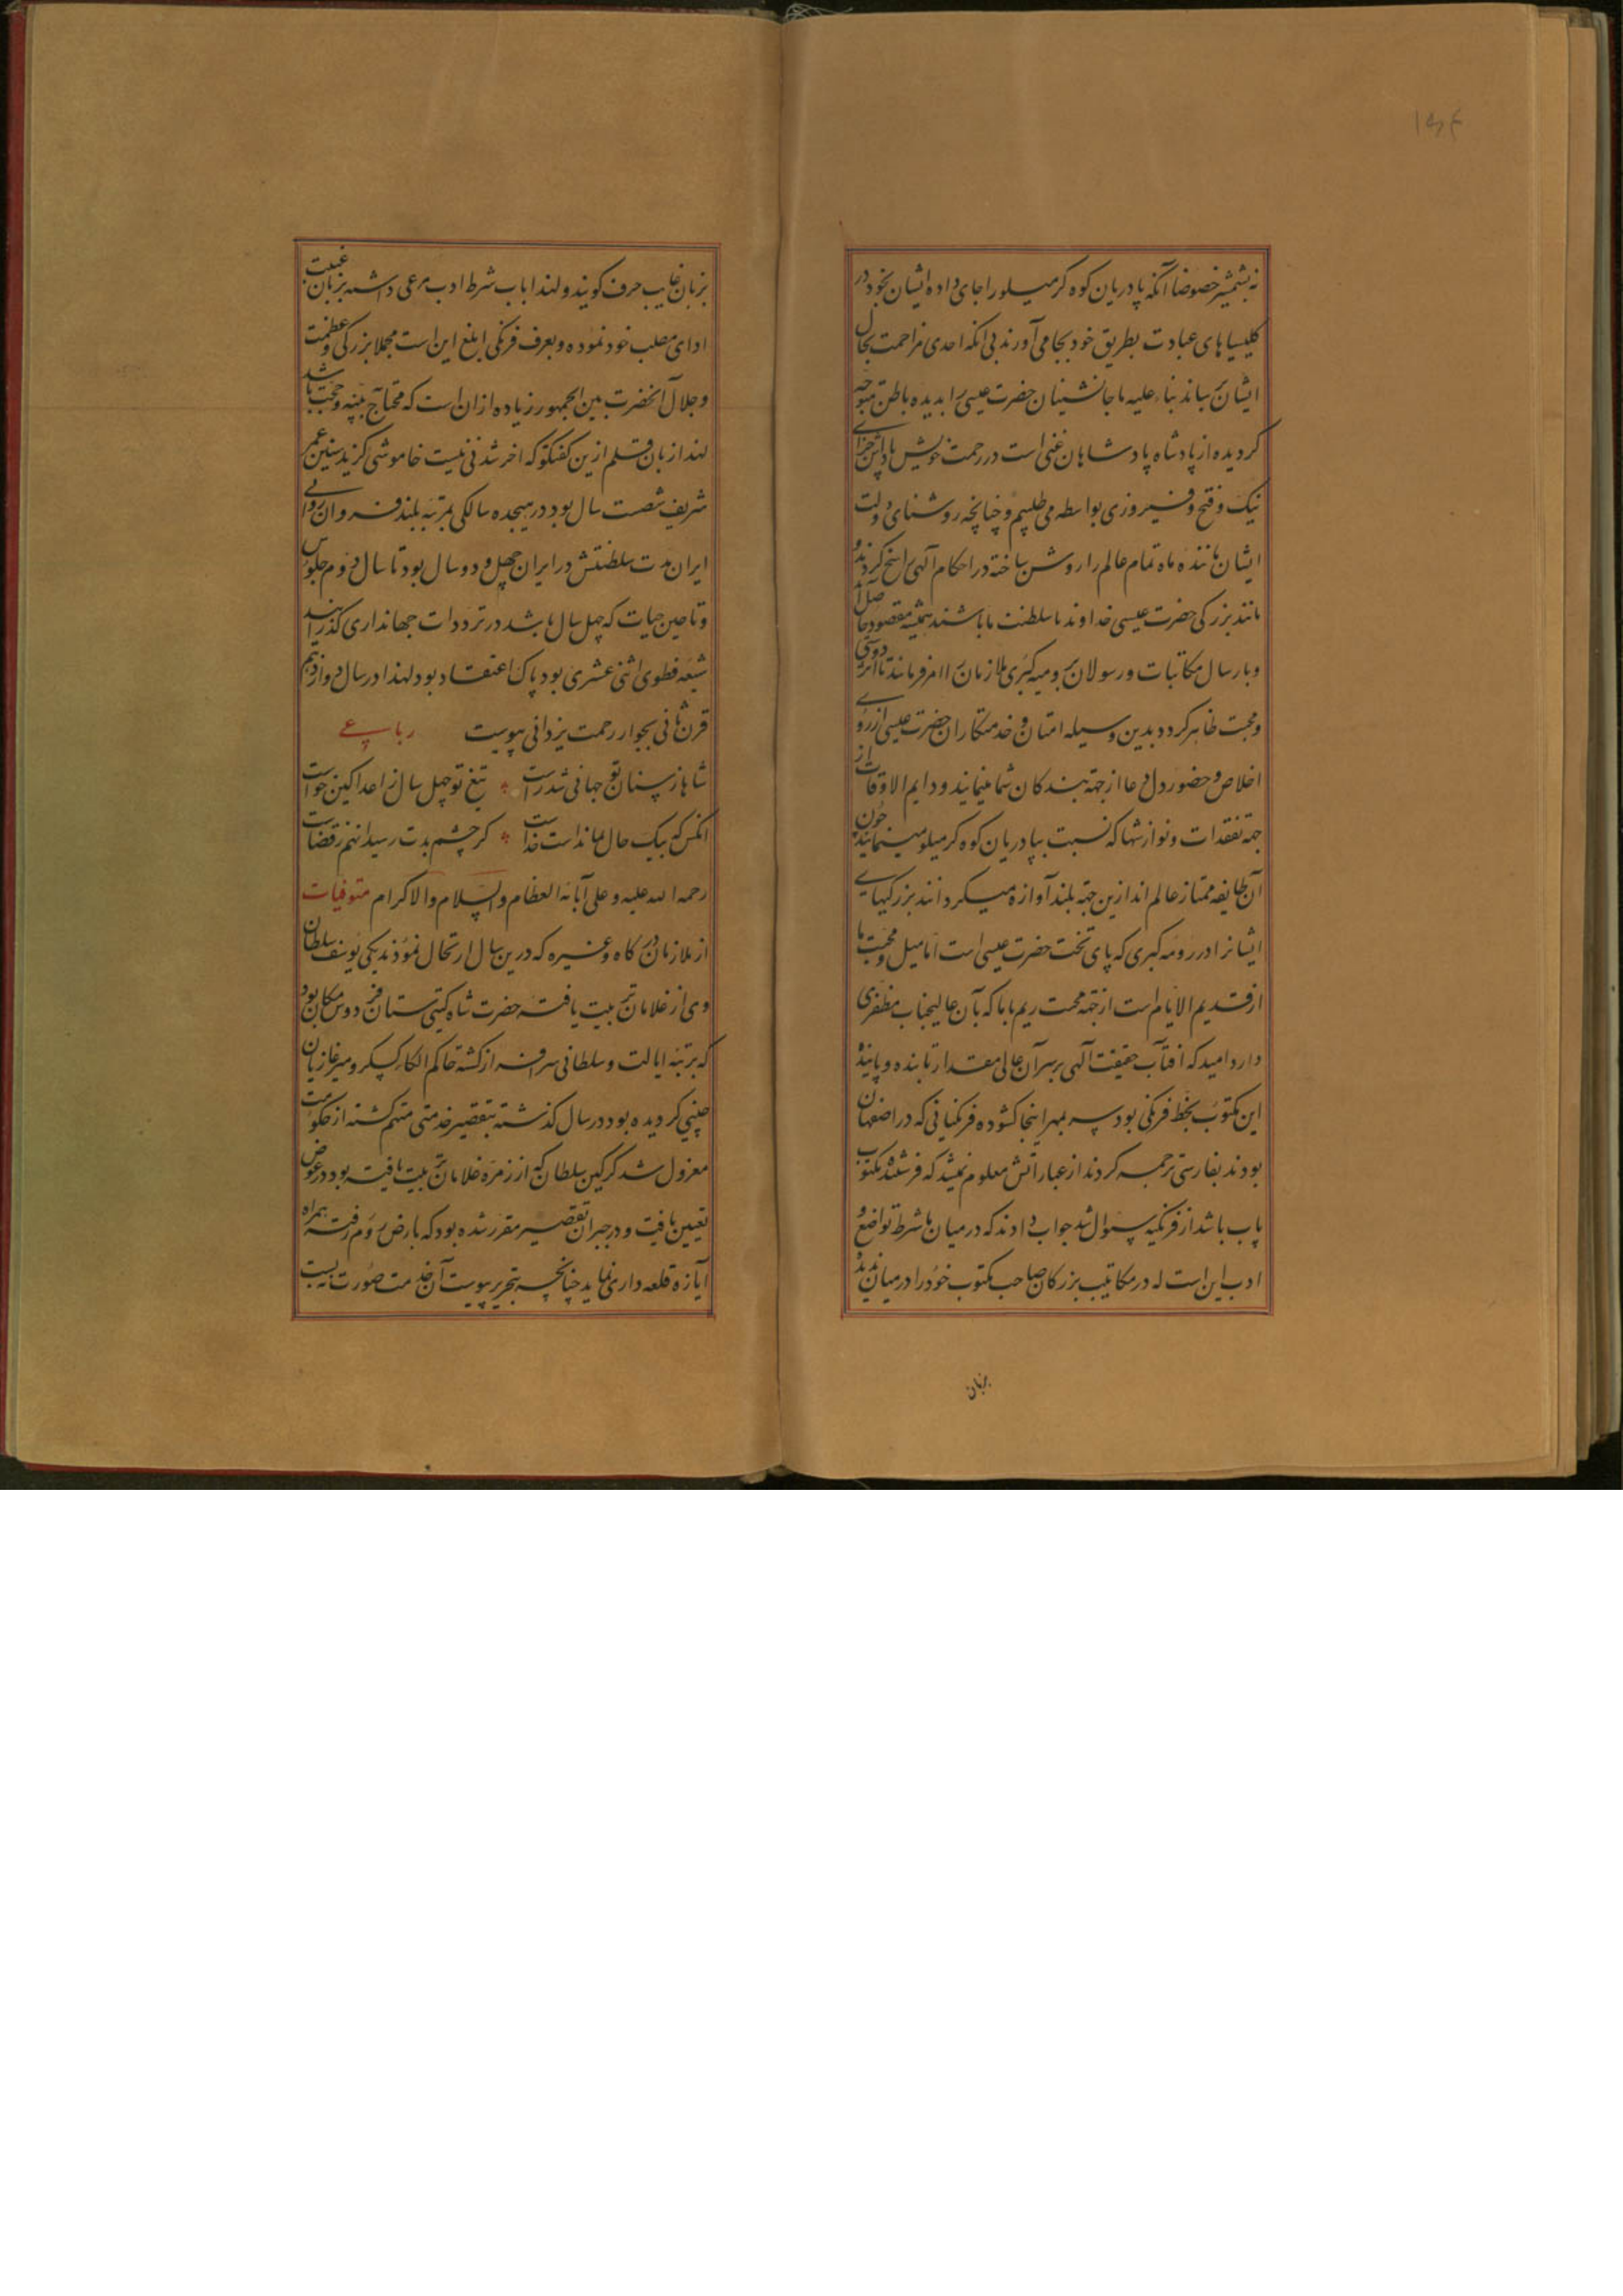 ۱۵۴
نه بشمشیر خصوصا آنکه پادریان کوه کرمیلو را جای داده ایشان بخود در
کلیساهای عبادت بطریق خود بجا می آورند بی انکه احدی مزاحمت بحال
ایشان رساند بناء علیه ما جانشینان حضرت عیسی را بدیده باطن متوجه
کردیده از پادشاه پادشاهان غنی است در رحمت خویش پاداش جزای
نیک و فتح و فیروزی بواسطه می طلبیم و چنانچه روشنای دولت
ایشان مانند ماه تمام عالم را روشن ساخته در احکام آلهی راسخ کردند و
مانند بزرکی حضرت عیسی خداوند ما سلطنت ما باشند همیشه مقصود حاصل آید
و بارسال مکاتبات و رسولان برومیه کبری ملازمان را امر فرمایند تا اثر دوستی
و محبت ظاهر کردد بدین وسیله امتان و خدمتکاران حضرت عیسی از روی
اخلاص و حضور دل دعا از جهة بندکان شما مینمایند و دایم الاوقات از
جهة تفقدات و نوازشها که نسبت بپادریان کوه کرمیلو مینمایند چون
آن طایفه ممتاز عالم اند ازین جهة بلند آوازه میکردانند بزرکیهای
ایشانرا در رومه کبری که پای تخت حضرت عیسی است اما میل و محبت ما
از قدیم الایام است از جهة محبت ریم پاپا که بآن عالیجناب مظفری
دارد امید که افتاب حقیقت آلهی بر سر آن عالی مقدار تابنده و پاینده
این مکتوب بخط فرنکی بود سر بمهر اینجا کشوده فرنکیانی که در اصفهان
بودند بفارسی ترجمه کردند از عباراتش معلوم نمیشد که فرستنده مکتوب
پاپ باشد از فرنکیه سوال شد جواب دادند که در میان ما شرط تواضع و
ادب این است که در مکاتیب بزرکان صاحب مکتوب خود را در میان ندیده
بزبان
بزبان غایب حرف کویند و لهذا پاپ شرط ادب مرعی داشته بزبان غیبت
ادای مطلب خود نموده و بعرف فرنکی ابلغ این است مجملا بزرکی و عظمت
و جلال آنحضرت بین الجمهور زیاده از ان است که محتاج بینه و حجت باشد
لهذا زبان قلم ازین کفتکو که اخر شدنی نیست خاموشی کزید سنین عمر
شریف شصت سال بود در هیجده سالکی بمرتبه بلند فرمان روائی
ایران مدت سلطنتش در ایران چهل و دو سال بود تا سال دوم جلوس
و تا حین حیات که چهل سال باشد در ترددات جهانداری کذرانید
شیعه فطری اثنی عشری بود پاک اعتقاد بود لهذا در سال دوازدهم
قرن ثانی بجوار رحمت یزدانی پیوست رباعی
شاها ز سنان تو جهانی شد راست تیغ تو چهل سال ز اعدا کین خواست
انکس که بیک حال بمانداست خداست کر چشم بدت رسیدانهم ز قضاست
رحمه الله علیه و علی آبائه العظام والسلام والاکرام متوفیات
از ملازمان درکاه و غیره که درین سال ارتحال نمودند یکی یوسف سلطان
وی از غلامان تربیت یافته حضرت شاه کیتی ستان فردوس مکان بود
که برتبه ایالت و سلطانی سرافراز کشته حاکم الکاء کسکر و میر غازیان
چینی کردیده بود در سال کذشته بتقصیر خدمتی متهم کشته از حکومت
معزول شد کرکین سلطان که از زمره غلامان تربیت یافته بود در عوض
تعیین یافت و در جبران تقصیر مقرر شده بود که بارض روم رفته همراه
آبازه قلعه داری نماید چنانچه بتحریر پیوست آن خدمت صورت نه بست